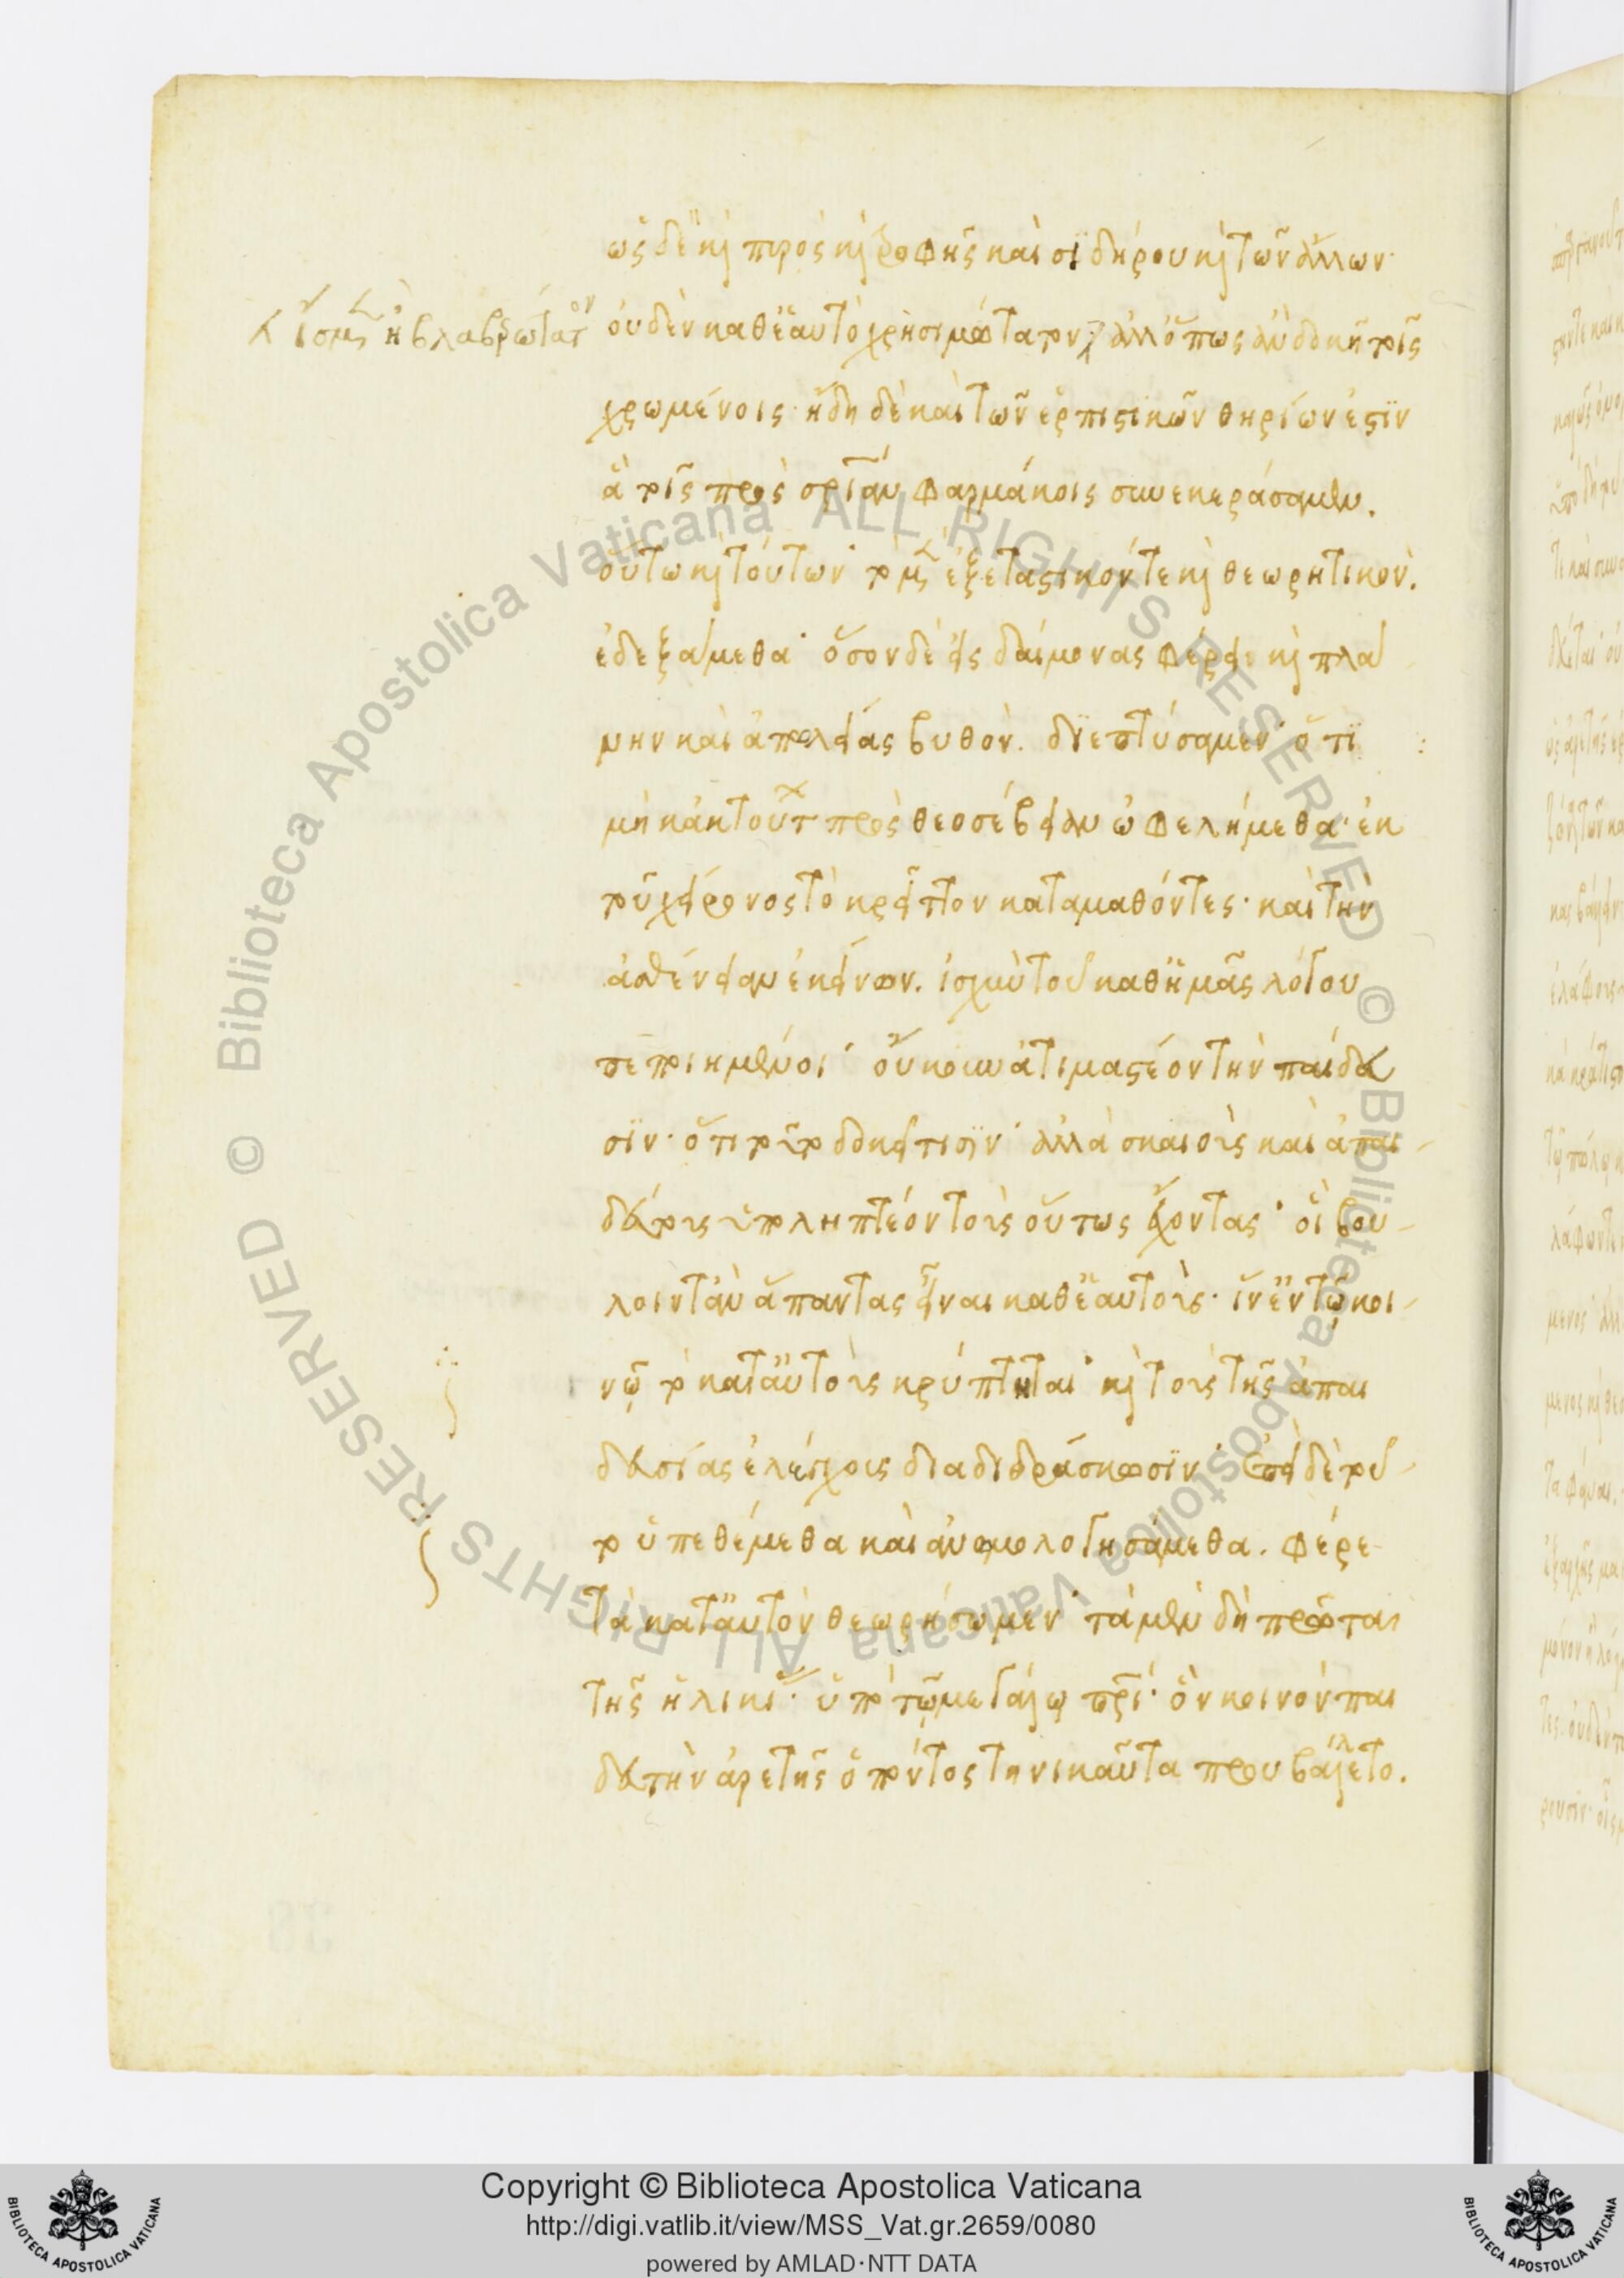 ὡς δὲ καὶ πυρὸς καὶ τροφῆς καὶ σιδήρου καὶ τῶν ἄλλων·
ἴσμεν ἢ βλαβερώτατον
οὐδὲν καθ' ἑαυτὸ χρησιμώτατον, ἀλλ' ὅπως ἂν δοκῇ τοῖς
χρωμένοις· ἤδη δὲ καὶ τῶν ἑρπιστικῶν θηρίων ἐστὶν
ἃ τοῖς πρὸς σωτηρίαν φαρμάκοις συνεκεράσαμεν.
οὕτω καὶ τούτων· τὸ μὲν ἐξεταστικόν τε καὶ θεωρητικὸν.
ἐδεξάμεθα· ὅσον δὲ εἰς δαίμονας φέρει καὶ πλά
νην καὶ ἀπωλείας βυθὸν. διεπτύσαμεν· ὅτι
μὴ κἀκ τούτων πρὸς θεοσέβειαν ὠφελήμεθα· ἐκ
τοῦ χείρονος τὸ κρεῖττον καταμαθόντες· καὶ τὴν
ἀσθένειαν ἐκείνων. ἰσχὺν τοῦ καθ' ἡμᾶς λόγου
πεποιημένοι· οὔκουν ἀτιμαστέον τὴν παίδευ
σιν· ὅτι τοῦτο δοκεῖ τισιν· ἀλλὰ σκαιοὺς καὶ ἀπαι-
δεύτους ὑποληπτέον τοὺς οὕτως ἔχοντας· οἳ βού-
λοιντ' ἂν ἅπαντας εἶναι καθ' ἑαυτοὺς· ἵν' ἐν τῷ κοι-
νῷ τὸ κατ' αὐτοὺς κρύπτηται· καὶ τοὺς τῆς ἀπαι
δευσίας ἐλέγχους διαδιδράσκωσιν· ἐπεὶ δὲ τοῦ-
το ὑπεθέμεθα καὶ ἀνωμολογησάμεθα. φέρε
τὰ κατ' αὐτὸν θεωρήσωμεν· τὰ μὲν δὴ πρῶτα
τῆς ἡλικίας· ὑπὸ τῷ μεγάλῳ πατρί· ὃν κοινὸν παι
δευτὴν ἀρετῆς ὁ πόντος τηνικαῦτα προυβάλετο.